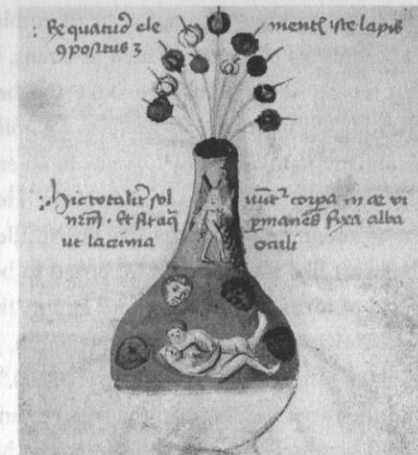 : Ex quatuor ele mentis iste lapis
ꝯpositus ꝫ
: Hic totalit sol uūt² corpa in
et fit aq̄ ꝑmanēs fixa alba
ut lacrima oculi